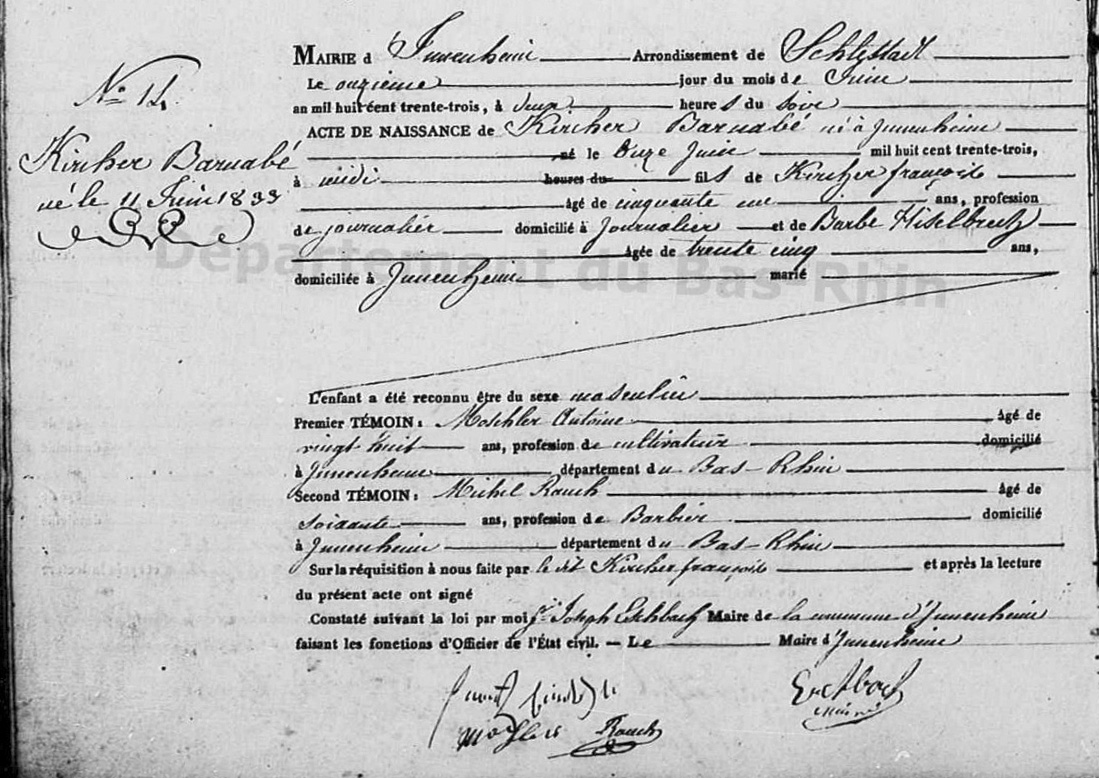 MAIRIE d'Innenheim Arrondissement de Schlestadt
Le onzieme jour du mois de Juin
an mil huit cent trente-trois, à deux heures du soir
ACTE DE NAISSANCE de Kircher Barnabé né à Innenheim
né le Onze Juin mil huit cent trente-trois,
à midi heures du fils de Kircher françois
âgé de cinquante un ans, profession
de journalier domicilié à Journalier et de Barbe Hiselbrech
âgée de trente cinq ans,
domiciliée à Innenheim marié
No 14
Kircher Barnabé
né le 11 Juin 1833
Département du Bas-Rhin
L'enfant a été reconnu être du sexe masculin
Premier TÉMOIN : Moschler Antoine âgé de
vingt huit ans, profession de cultivateur domicilié
à Innenheim département du Bas-Rhin
Second TÉMOIN : Michel Rauch âgé de
soixante ans, profession de Barbier domicilié
à Innenheim département du Bas-Rhin
Sur la réquisition à nous faite par le dit Kircher françois et après la lecture
du présent acte ont signé
Constaté suivant la loi par moi Joseph Eschbach Maire de la commune d'Innenheim
faisant les fonctions d'Officier de l'État civil. — Le Maire d'Innenheim
Eschbach
Rauch